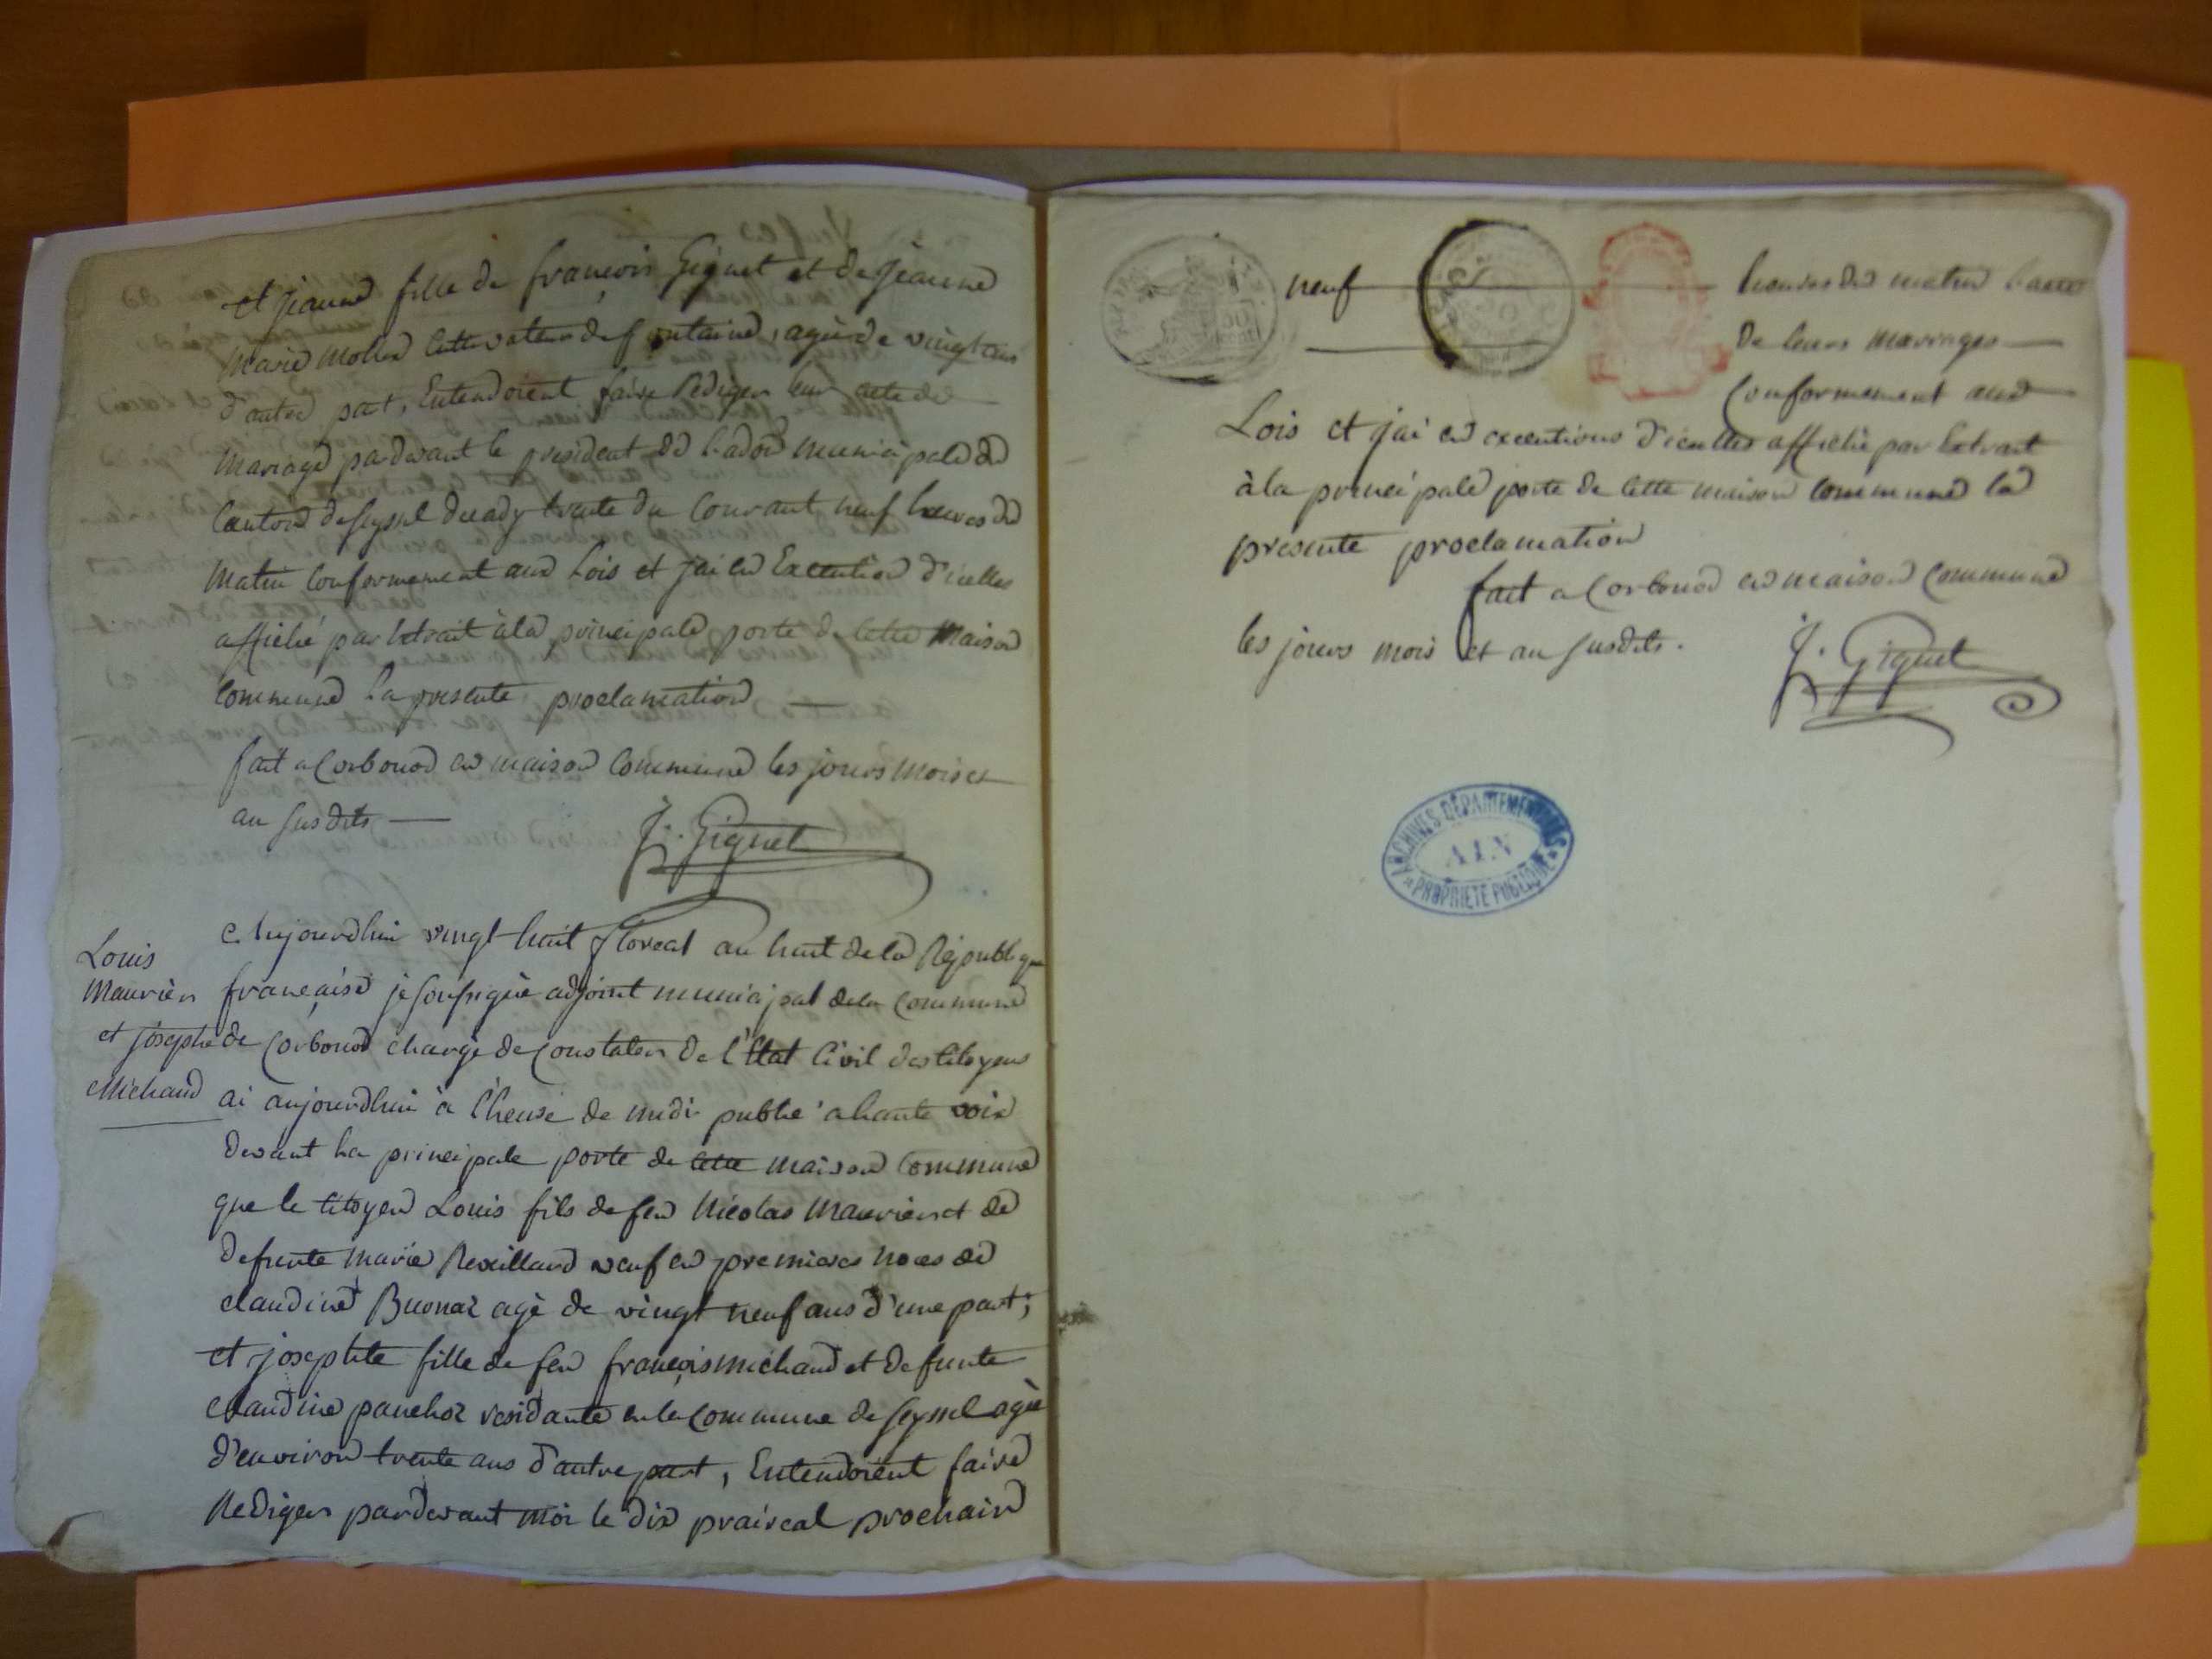 et jeanne fille de francois Giguet et de Jeanne
Marie Mollex Cultivateur de fontaine, agée de vingt ans
d'autre part, Entendoient faire Rediger leur acte de
Mariage pardevant le president de l'adon municipale de
Canton de Seyssel decady trente du Courant neuf heures du
Matin Conformement aux Lois et j'ai en Execution d'icelles
affiché par Extrait à la principale porte de cette Maison
Commune la presente proclamation
fait a Corbonod en maison Commune les jours mois et
an susdits
J. Giguet
Louis
Maurier
et josephte
Michaud
Aujourdhui vingt huit floreal an huit de la Republique
française je soussigné adjoint municipal de la Commune
de Corbonod chargé de Constater de l'Etat Civil des Citoyens
ai aujourdhui à l'heure de midi publié a haute voix
devant la principale porte de cette maison Commune
que le Citoyen Louis fils de feu Nicolas Maurier et de
defunte Marie Revillard veuf en premieres noces de
claudine Buonaz agé de vingt neuf ans d'une part;
et josephte fille de feu françois michaud et defunte
claudine panchoz residante en la Commune de Seyssel agée
d'environ trente ans d'autre part, Entendoient faire
Rediger pardevant moi le dix praireal prochain
neuf heures du matin l'acte
de leurs mariages
Conformement aux
Lois et j'ai en executions d'icelles affiché par Extrait
à la principale porte de cette maison Commune la
presente proclamation
fait a Corbonod en maison Commune
les jours mois et an susdits.
J. Giguet
ARCHIVES DÉPARTEMENTALES
AIN
PROPRIÉTÉ PUBLIQUE